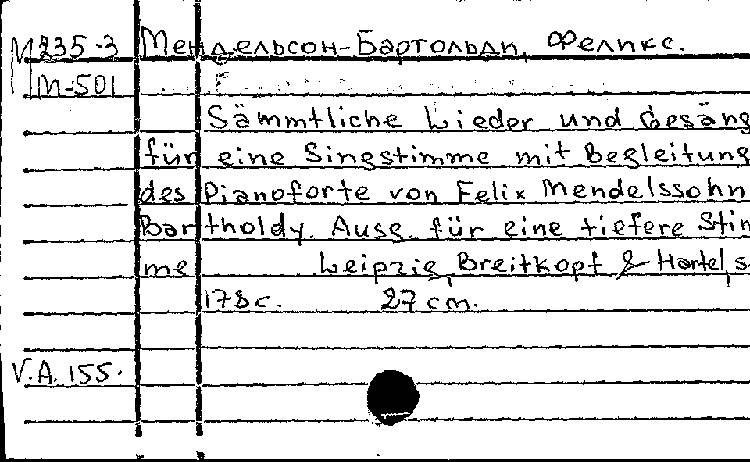 М235-3 Мендельсон-Бартольди, Феликс.
М-501
Sämmtliche Lieder und Gesäng
für eine Singstimme mit Begleitung
des Pianoforte von Felix Mendelssohn
Bartholdy. Ausg. für eine tiefere Stim
me Leipzig, Breitkopf & Hartel, s
178 с. 27 cm.
V.A. 155.